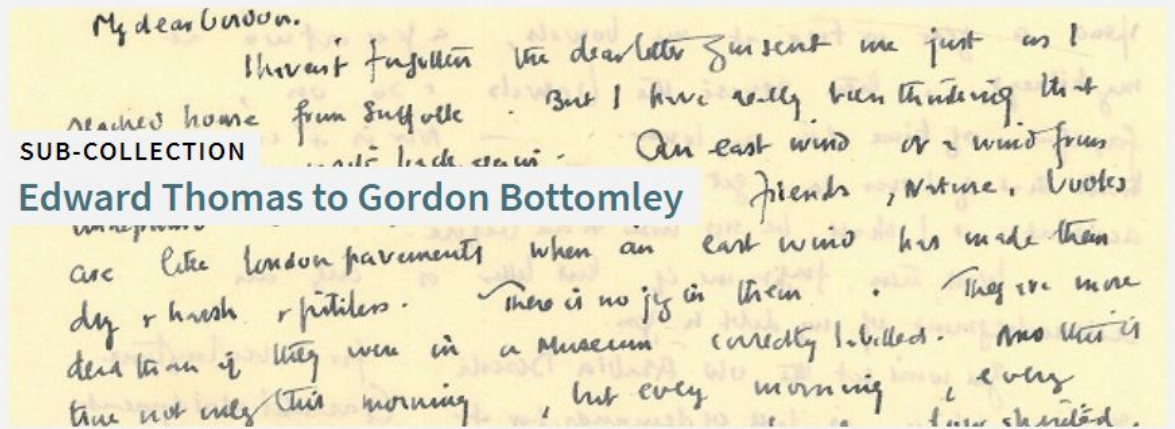 My dear Gordon.
I havent forgotten the dear letter you sent me just as I
reached home from Suffolk. But I have really been thinking that
SUB-COLLECTION
back again. An east wind or a wind from
Edward Thomas to Gordon Bottomley
friends, Nature, books
are like London pavements when an east wind has made them
dry & harsh & pitiless. There is no joy in them. They are more
dead than if they were in a Museum correctly labelled. And this is
true not only this morning, but every morning, every